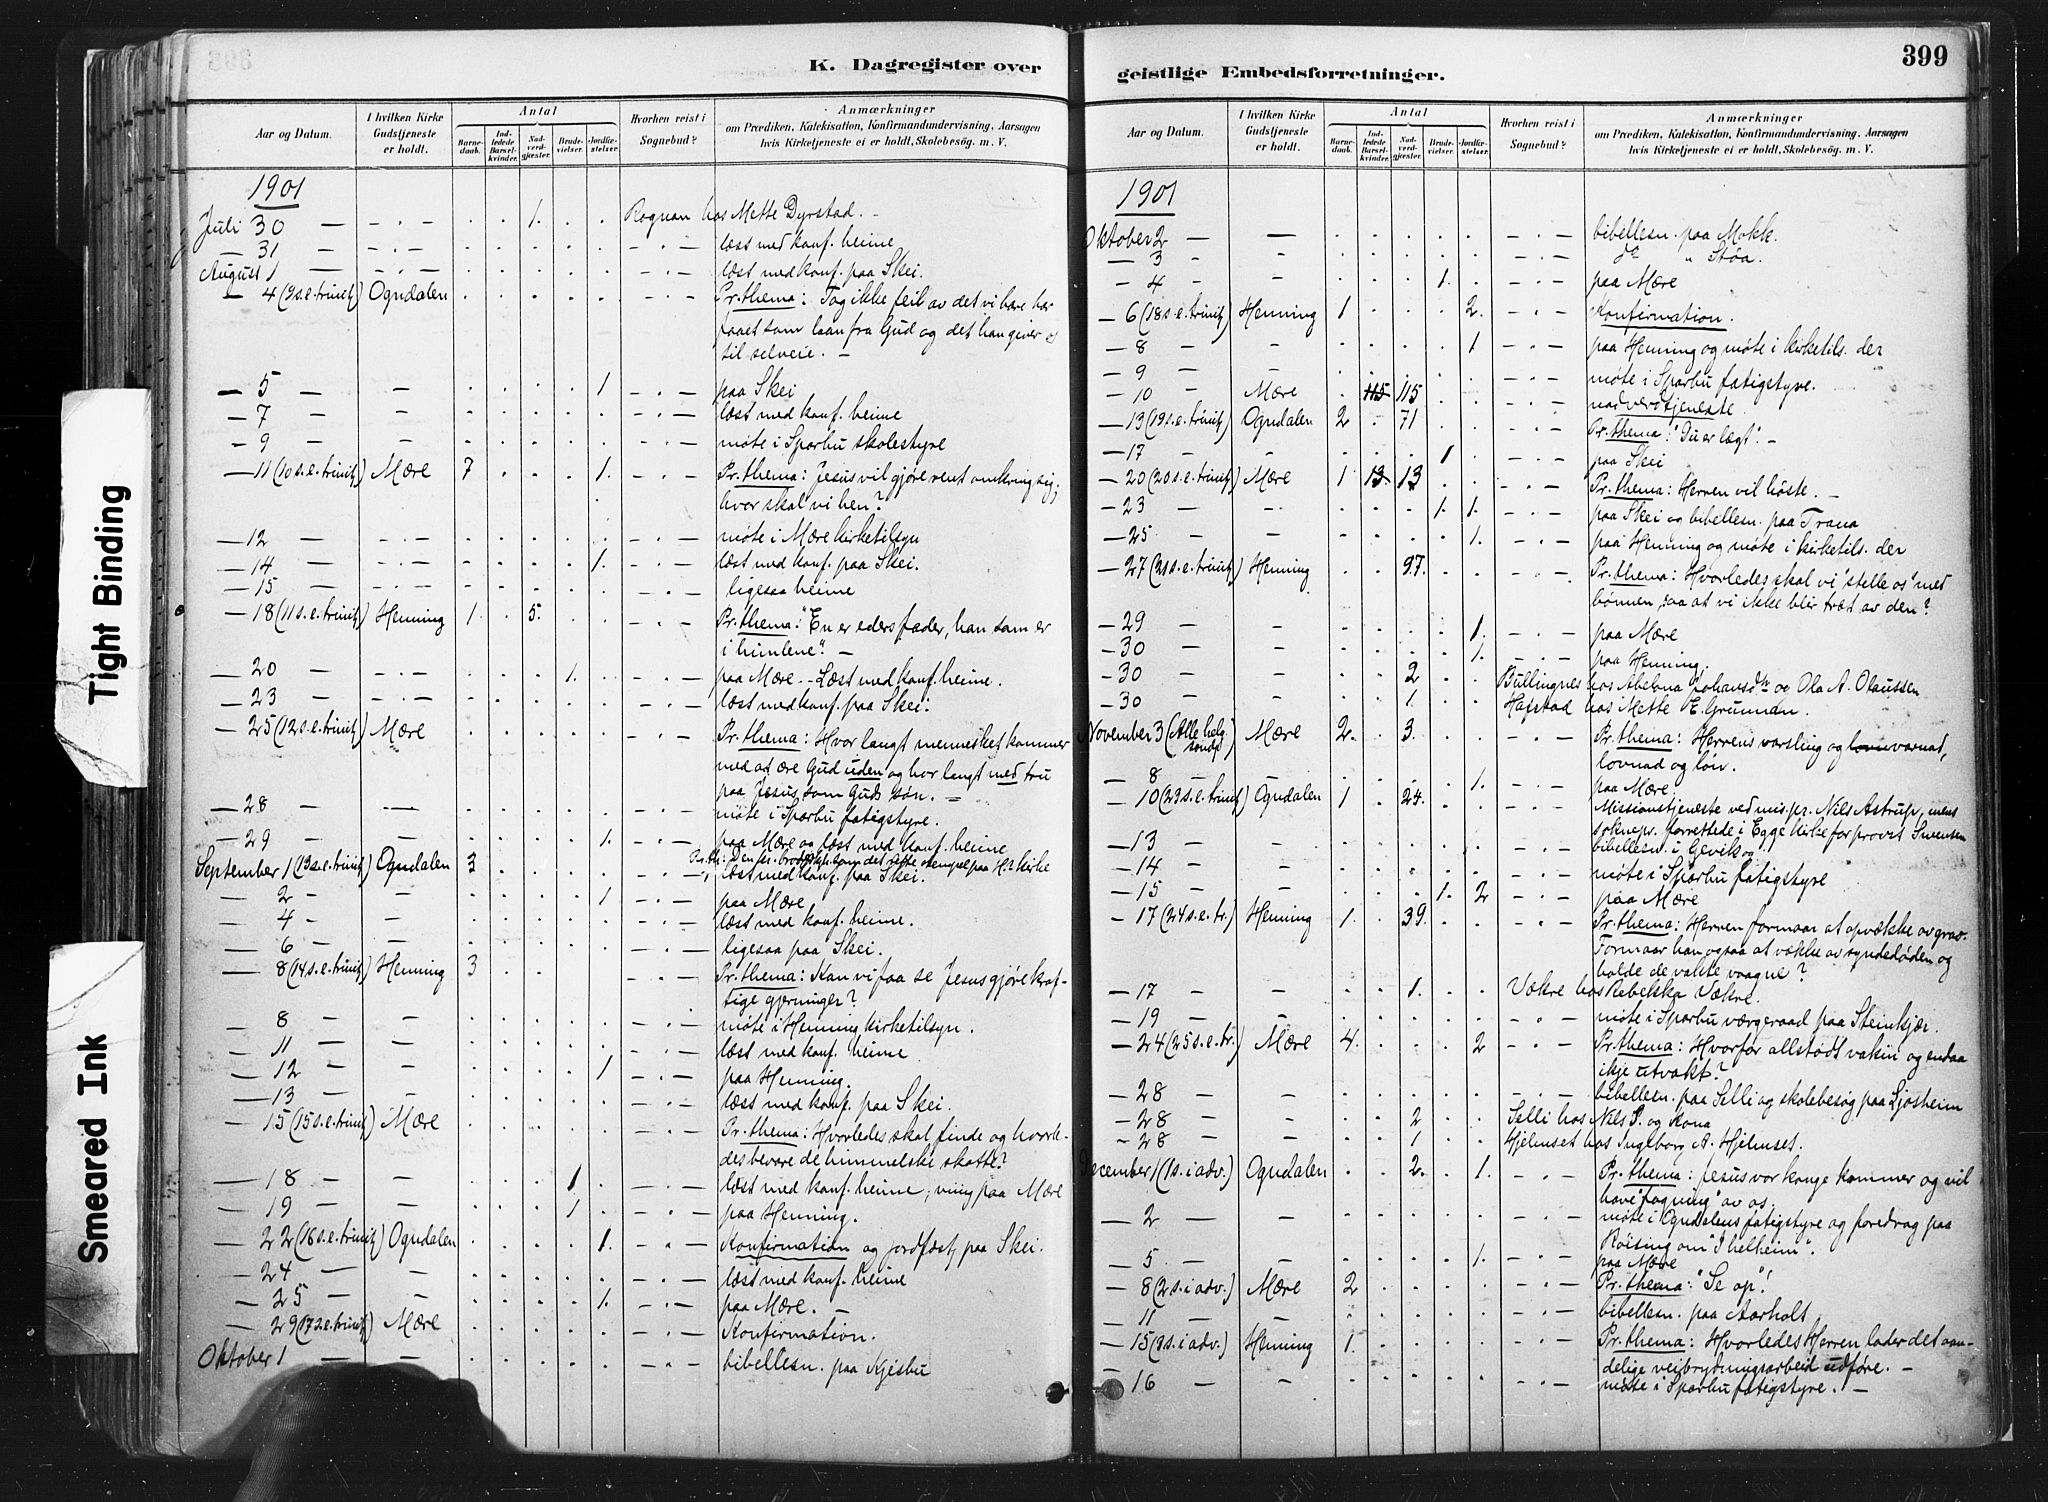 K. Dagregister over
Aar og Datum.
I hvilken Kirke Gudstjeneste er holdt.
Antal
Barne-daab.
Ind-ledede Barsel-kvinder.
Nad-verd-gjæster.
Brude-vielser.
Jordfæ-stelser.
Hvorhen reist i Sognebud?
Anmærkninger
om Prædiken, Katekisation, Konfirmandundervisning, Aarsagen
hvis Kirketjeneste ei er holdt, Skolebesøg. m. V.
1901
Juli 30 — - . - 1. Rognan hos Mette Dyrstad. -
— 31 — - . - læst med konf. heime
August 1 — - . - læst med konf. paa Skei.
— 4 (9 s.e. trinit) Ogndalen - . - Pr. thema: Tag ikke feil av det vi bare har
faaet som laan fra Gud og det han giver os
til selveie. —
— 5 — — 1 - . - paa Skei
— 7 — — - . - læst med konf. heime
— 9 — — - . - møte i Sparbu skolestyre
— 11 (10 s.e. trinit) Mære 7 1. - . - Pr. thema: Jesus vil gjøre rent omkring sig;
hvor skal vi hen?
— 12 — - . - møte i Mære kirketilsyn
— 14 — - . - 1. - . - læst med konf. paa Skei.
— 15 — - . - ligesaa heime
— 18 (11 s.e. trinit) Henning 1. 5. - . - Pr. thema: "En er eders fader, han som er
i himlene". —
— 20 — - . - 1. - . - paa Mære. - Læst med konf. heime.
— 23 — - . - læst med konf. paa Skei.
— 25 (12 s.e. trinit) Mære - . - Pr. thema: Hvor langt mennesket kommer
med at ære Gud uden og hor langt med tru
paa Jesus som Guds søn. —
— 28 — — - . - møte i Sparbu fatigstyre.
— 29 — — 1. - . - paa Mære og læst med konf. heime
September 1 (13 s.e. trinit) Ogndalen 3 - . - læst med konf. paa Skei.
— 2 — — 1 - . - paa Mære
— 4 — — - . - læst med konf. heime.
— 6 — — - . - ligesaa paa Skei.
— 8 (14 s.e. trinit) Henning 3 - . - Pr. thema: Kan vi faa se Jesus gjøre kraf-
tige gjerninger?
— 8 — — - . - møte i Henning kirketilsyn.
— 11 — — - . - læst med konf. heime
— 12 — — 1 - . - paa Henning.
— 13 — — - . - læst med konf. paa Skei.
— 15 (15 s.e. trinit) Mære - . - Pr. thema: Hvorledes skal finde og hvorle-
des bevare de himmelske skatte?
— 18 — — 1 - . - læst med konf. heime; ving paa Mære
— 19 — — 1 - . - paa Henning.
— 22 (16 s.e. trinit) Ogndalen 1. - . - Konfirmation og jordfæst. paa Skei.
— 24 — — - . - læst med konf. heime
— 25 — — 1. - . - paa Mære. —
— 29 (17 s.e. trinit) Mære - . - Konfirmation.
Oktober 1 — — - . - bibellesn. paa Kjesbu
Tight Binding
Smeared Ink
geistlige Embedsforretninger.
399
Aar og Datum.
I hvilken Kirke Gudstjeneste er holdt.
Antal
Barne-daab.
Ind-ledede Barsel-kvinder.
Nad-verd-gjæster.
Brude-vielser.
Jordfæ-stelser.
Hvorhen reist i Sognebud?
Anmærkninger
om Prædiken, Katekisation, Konfirmandundervisning, Aarsagen
hvis Kirketjeneste ei er holdt, Skolebesøg. m. V.
1901
Oktober 2 — — - . - bibellesn. paa Mokk.
— 3 - - - . - do " Støa.
— 4 - - 1. - . - paa Mære
— 6 (18 s.e. trinit) Henning 1 2. - . - Konfirmation.
— 8 - - 1 - . - paa Henning og møte i kirketils. der
— 9 - - - . - møte i Sparbu fatigstyre.
— 10 - Mære 115 115 - . - nadverdtjeneste
— 13 (19 s.e. trinit) Ogndalen 2 71 - . - Pr. thema: "Du er lægt". -
— 17 - - 1 - . - paa Skei
— 20 (20 s.e. trinit) Mære 1 13 13 - . - Pr. thema: Herren vil høste. —
— 23 — - 1. 1. - . - paa Skei og bibellesn. paa Trana
— 25 — - 1. - . - paa Henning og møte i kirketils. der
— 27 (21 s.e. trinit) Henning 97. - . - Pr. thema: Hvorledes skal vi "stelle os" med
bønnen, saa at vi ikke blir træt av den?
— 29 - - 1. - . - paa Mære
— 30 - - 1. - . - paa Henning.
— 30 - - 2 Bullingnes hos Abelona Johansdtr og Ola A. Olaussen
— 30 - - 1. Hafstad hos Mette E. Grunnan.
November 3 (Alle helg. sønd) Mære 2. 3. - . - Pr. thema: Herrens varsling og varnad,
lovnad og løn.
— 8 - - 1. - . - paa Mære.
— 10 (23 s.e. trinit) Ogndalen 1 24. - . - Missionstjeneste ved mis.pr. Nils Astrup, mens
soknepr. forrettede i Egge kirke for provst Swensen
— 13 - - - . - bibellesn. i Gevik
— 14 - - - . - møte i Sparbu fatigstyre
— 15 - - 1. 2 - . - paa Mære
— 17 (24 s.e. tr.) Henning 1. 39. - . - Pr. thema: Herren formaar at opvække av grav.
Formaar han ogsaa at vække av syndedøden og
holde de vakte vaagne?
— 17 - - 1. Vækre hos Rebekka Vækre.
— 19 - - - . - møte i Sparbu værgeraad paa Steinkjær.
— 24 (25 s.e. tr.) Mære 4. 2 - . - Pr. thema: Hvorfor allstødt vakin og endaa
ikje utvakt?
— 28 - - - . - bibellesn. paa Selli og skolebesøg paa Ljosheim
— 28 - - 2 Selli hos Nils S. og kona
- 28 - - 1 Hjelmset hos Ingeborg A. Hjelmset.
December 1 (1 s. i adv.) Ogndalen 2. 1. - . - Pr. thema: Jesus vor konge kommer og vil
have "fagning" av os.
— 2 — - - . - møte i Ogndalens fatigstyre og foredrag paa
Røising om "I helheim".
— 5 - - 1. - . - paa Mære
— 8 (2 s. i adv.) Mære 2 - . - Pr. thema: "Se op"!
— 11 — - - . - bibellesn. paa Aarholt
— 15 (3 s. i adv.) Henning 1. - . - Pr. thema: Hvorledes Herren lader det aan-
delige veibrydningsarbeid udføre. —
— 16 - - - . - møte i Sparbu fatigstyre. —